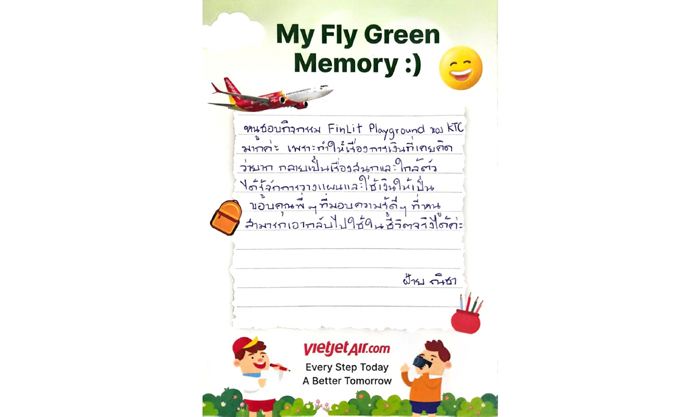 My Fly Green
Memory :)
หนูชอบกิจกรรม FinLit Playground ของ KTC
มากค่ะ เพราะทำให้เรื่องการเงินที่เคยคิด
ว่ายาก กลายเป็นเรื่องสนุกและใกล้ตัว
ได้รู้จักการวางแผนและใช้เงินให้เป็น
ขอบคุณพี่ๆ ที่มอบความรู้ดีๆ ที่หนู
สามารถเอากลับไปใช้ในชีวิตจริงได้ค่ะ
ฝ้าย ณิชา
vietjetAir.com
Every Step Today
A Better Tomorrow